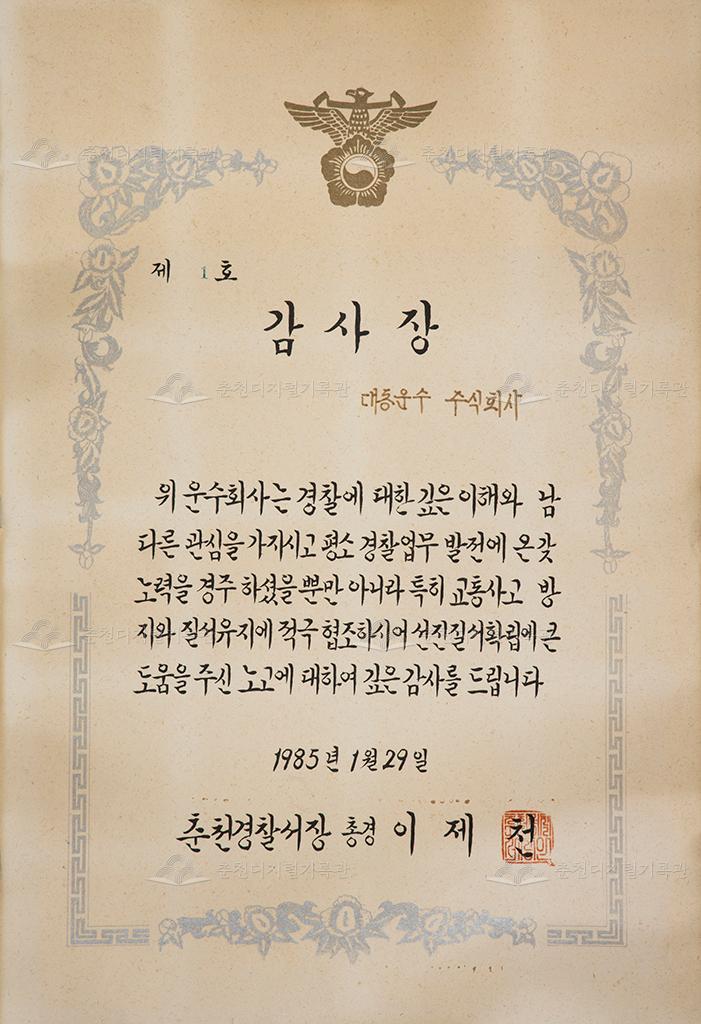 제 1 호
감사장
대동운수 주식회사
위 운수회사는 경찰에 대한 깊은 이해와 남
다른 관심을 가지시고 평소 경찰업무 발전에 온갖
노력을 경주 하셨을 뿐만 아니라 특히 교통사고 방
지와 질서유지에 적극 협조하시어 선진질서확립에 큰
도움을 주신 노고에 대하여 깊은 감사를 드립니다
1985년 1월 29일
춘천경찰서장 총경 이 제 천
춘천디지털기록관